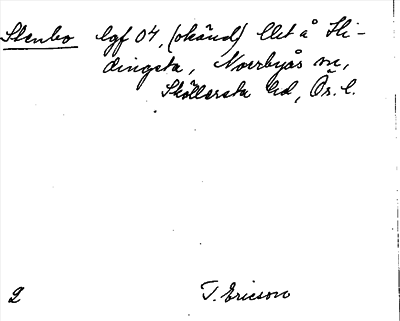 Stenbo lgf 04, (okänd) llet å Hi-
dingsta, Norrbyås sn,
Sköllersta hd, Ör. l.
2 T. Ericson